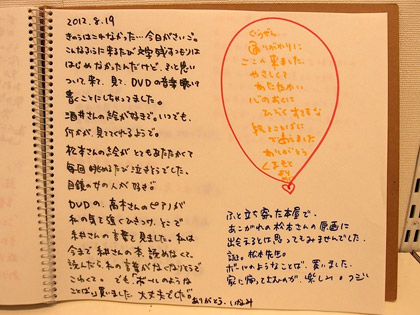 2012.8.19
きのうはこれなかった…今日がさいご。
こんなふうに来るたび文字残すつもりは
はじめなかったんだけど、ふと思い
ついて来て、見て、DVDの音楽聴いて
書くことになってました。
酒井さんの絵が好き。いつでも、
何かが、見てくれるようで。
松本さんの絵が とてもあたたかくて
毎回眺めるたび泣きそうでした。
目鏡の女の人が好き。
DVDの、高木さんのピアノが
私の耳に遠くひびきつつ、どこで
さんの言葉で見ました。私は
今まで さんの本、読めなくて。
読んだら、私の言葉がなくなりそうで
こわくて。でも「ボールのような
ことば」買いました 大丈夫でした。
ありがとう。
ぐうぜん
通りがかりに
ここへ来ました。
やさしくて
あたたかい
心のおくに
ひびく すてきな
絵とことばに
であえました
ありがとう
くまもと
ふと立ち寄った本屋で、
あこがれの松本さんの原画に
出会えるとは思ってもみませんでした。
謎。松本先生。
ボールのようなことば、買いました。
家に帰ってよむのが、楽しみ。